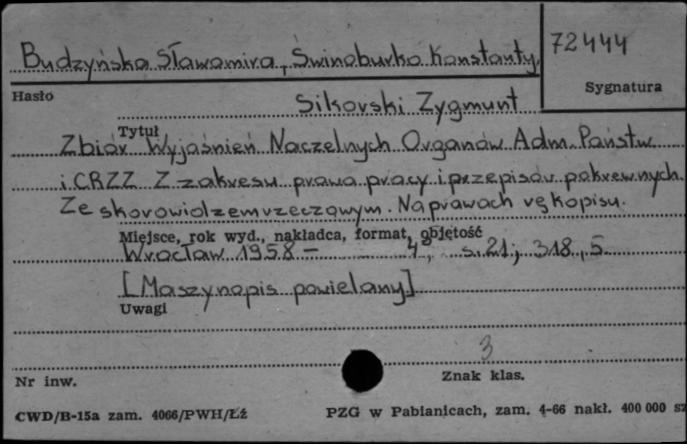 Budzyńska Sławomira, Świnoburko Konstanty,
72444
Sygnatura
Hasło
Sikorski Zygmunt
Tytuł
Zbiór Wyjaśnień Naczelnych Organów Adm. Państw.
i CRZZ Z zakresu prawa pracy i przepisów pokrewnych.
Ze skorowidzem rzeczowym. Na prawach rękopisu.
Miejsce, rok wyd., nakładca, format, objętość
Wrocław 1958 – 4°, s. 21; 318, 5
[Maszynopis powielany]
Uwagi
3
Nr inw.
Znak klas.
CWD/B-15a zam. 4066/PWH/Łź
PZG w Pabianicach, zam. 4-66 nakł. 400 000 sz